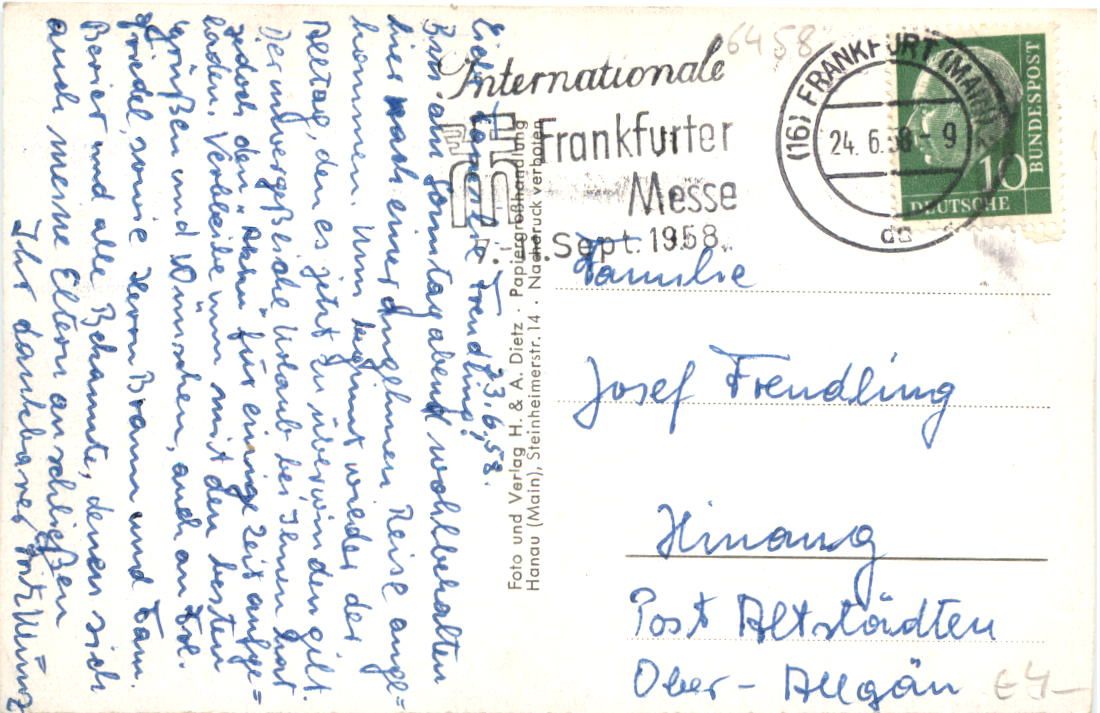 23.6.58.
Liebe Familie Frendling!
Bin am Sonntagabend wohlbehalten
hier nach einer angenehmen Reise ange=
kommen. Nun beginnt wieder der
Alltag, den es jetzt zu überwinden gilt.
Der unvergeßliche Urlaub bei Ihnen hat
jedoch den "Akku" für einige Zeit aufge=
laden. Verbleibe nun mit den besten
Grüßen und Wünschen, auch an Frl.
Friedel, sowie Herrn Braun und Fam.
Berier und alle Bekannte, denen sich
auch meine Eltern anschließen
Ihr dankbarer
Foto und Verlag H. & A. Dietz · Papiergroßhandlung
Hanau (Main), Steinheimerstr. 14 · Nachdruck verboten
Internationale
Frankfurter
Messe
Sept. 1958
6458
(16) FRANKFURT (MAIN) 2
24. 6. 58 - 9
da
10
DEUTSCHE
BUNDESPOST
Familie
Josef Frendling
Hinang
Post Altstädten
Ober - Allgäu
€4-